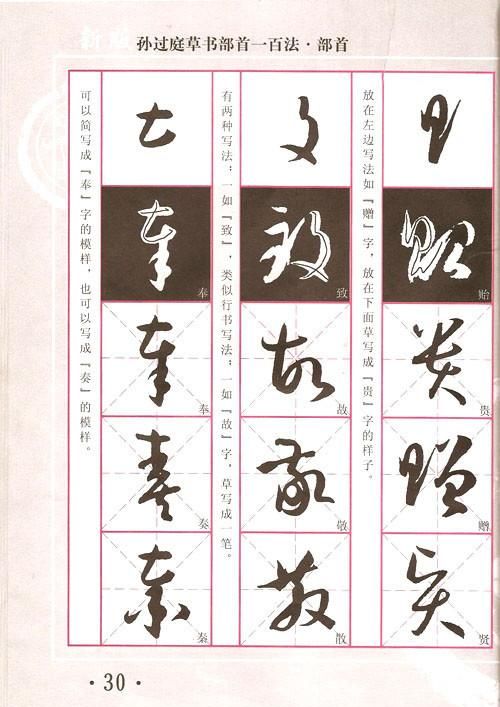 新版 孙过庭草书部首一百法·部首
放在左边写法如『赠』字，放在下面草写成『贵』字的样子。
贻
贵
赠
贤
有两种写法：一如『致』，类似行书写法；一如『故』字，草写成一笔。
致
故
敬
散
可以简写成『奉』字的模样，也可以写成『奏』的模样。
奉
奉
奏
秦
·30·